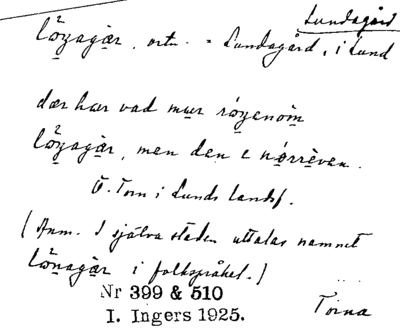 Lundagård
lö̀ʒagàr, ortn. = Lundagård, i Lund
dær har vad mur röʒenöm
lö̀ʒagàr, men den e nørrèven.
Ö. Torn i Lunds landsf.
(Anm. I själva staden uttalas namnet
lö̀nagàr i folkspråket.)
Nr 399 & 510
I. Ingers 1925.
Torna